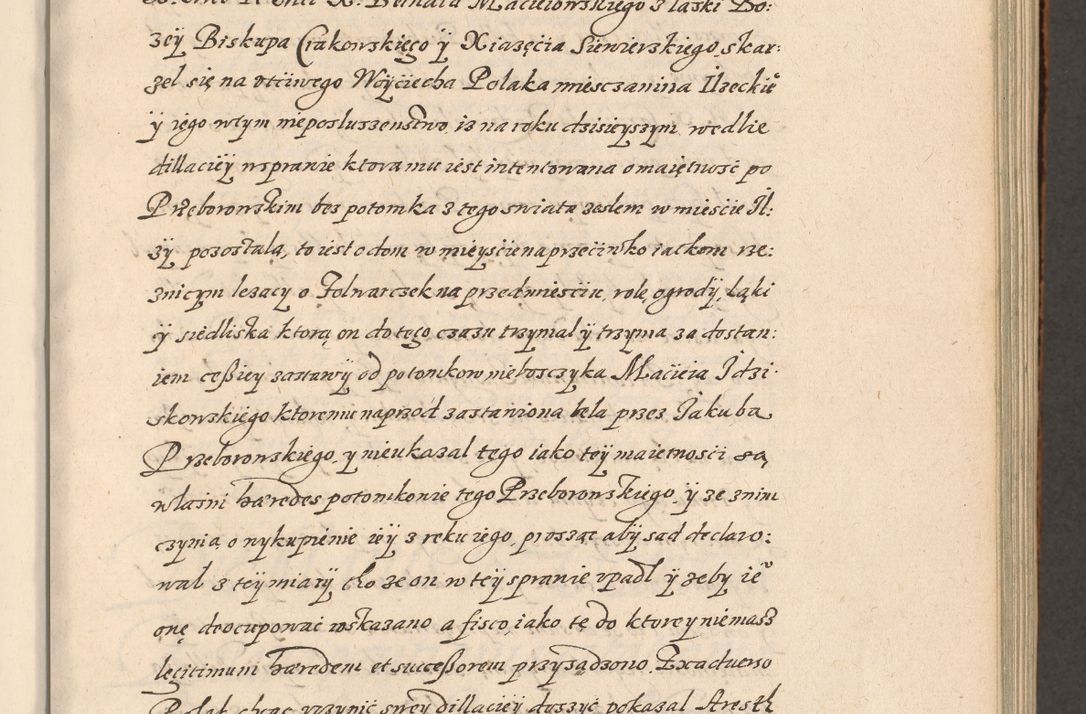 X. Bernata Macieiowskiego z łaski Bo:
zeÿ Biskupa Crakowskięgo ÿ Xiazęćia Siewierskiego, skar:
zel się na vtćiwego Woÿćiecha Polaka miesczanina Ilzeckie
ÿ iego wtym nieposluszenstwo, iz na roku dzisieÿszym wedlie
dillacieÿ wsprawie ktora mu iest intentowana o maiętnosć po
Przeborowskim bes potomka z tego swiata zeslem w mieście Il:
zÿ pozostałą, to iest o dom w mieÿsćie naprzećiwko iatkom rze:
znicÿm lezacy o Folwarczek na przedmiesćiu, rolę, ogrodÿ, Ląki
ÿ siedliska ktorą on do tego czasu trzymal ÿ trzyma za dostan:
iem ceßiey zastawÿ od potomkow nieboszczyka Macieia Idzi:
skowskiego ktoremu naprzod zastawiona bela przez Jakuba
Przeborowskiego, y nieukazal tego iako teÿ maietnosci są
własni hæredes potomkowie tego Przeborowskiego, ÿ ze znim
czynią o wykupienie ieÿ z reku iego, prosząc abÿ sad declaro:
wal z teÿ miarÿ, tho ze on w teÿ sprawie vpadl ÿ zeby ie
onę deocupować wskazano a fisco, iako tę do ktorey niemasz
legitimum hæredem et successorem przysądzono. Ex adverso
Polak chcąc vczynić swey dillacieÿ doszyć pokazal Arestu